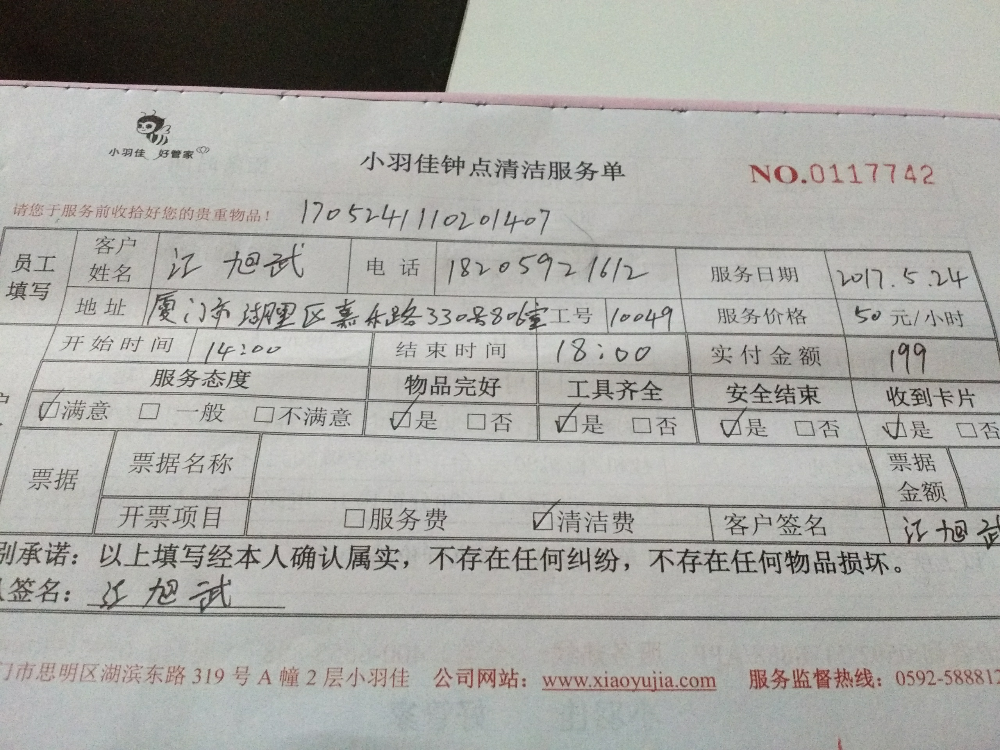 小羽佳 好管家
小羽佳钟点清洁服务单
NO.0117742
请您于服务前收拾好您的贵重物品！ 1705241110201407
员工填写 客户姓名 江旭武 电话 18205921612 服务日期 2017.5.24
地址 厦门市湖里区嘉禾路330号806室 工号 10049 服务价格 50元/小时
开始时间 14:00 结束时间 18:00 实付金额 199
服务态度 物品完好 工具齐全 安全结束 收到卡片
☑满意 □一般 □不满意 ☑是 □否 ☑是 □否 ☑是 □否 ☑是 □否
票据 票据名称 票据金额
开票项目 □服务费 ☑清洁费 客户签名 江旭武
别承诺：以上填写经本人确认属实，不存在任何纠纷，不存在任何物品损坏。
签名：江旭武
门市思明区湖滨东路 319 号 A 幢 2 层小羽佳 公司网站：www.xiaoyujia.com 服务监督热线：0592-588812